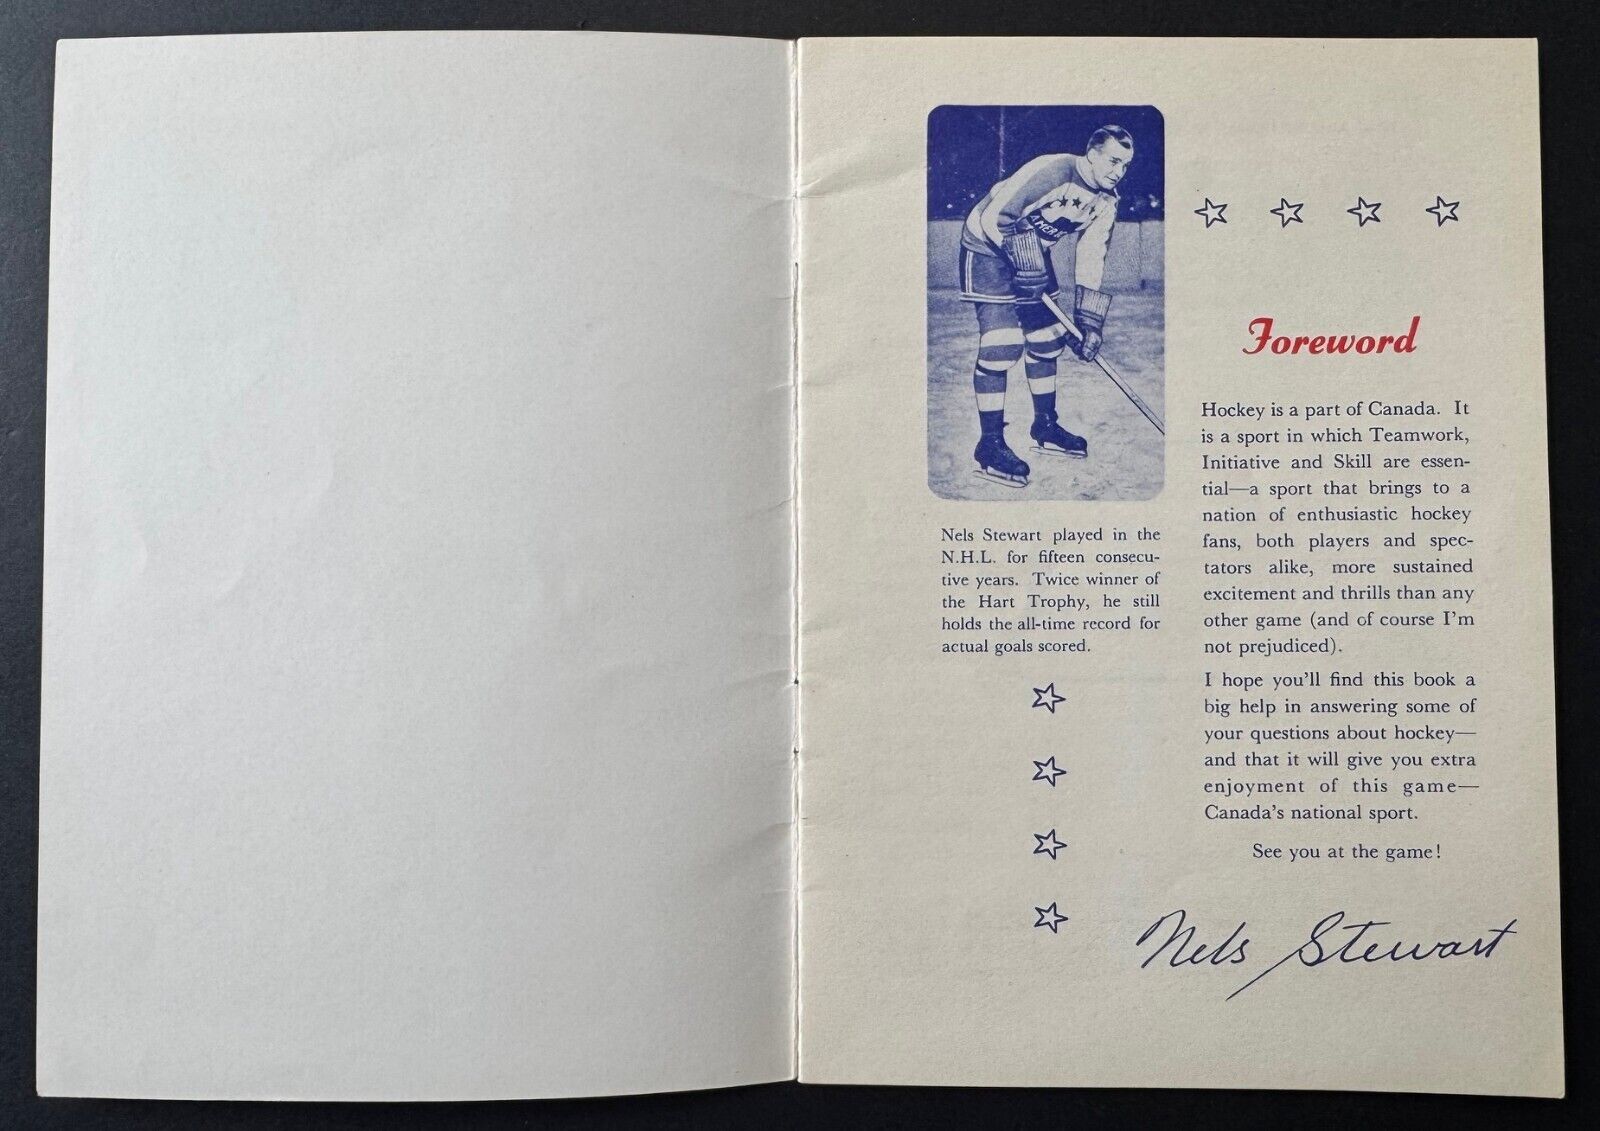 AMER
Nels Stewart played in the
N.H.L. for fifteen consecu-
tive years. Twice winner of
the Hart Trophy, he still
holds the all-time record for
actual goals scored.
Foreword
Hockey is a part of Canada. It
is a sport in which Teamwork,
Initiative and Skill are essen-
tial—a sport that brings to a
nation of enthusiastic hockey
fans, both players and spec-
tators alike, more sustained
excitement and thrills than any
other game (and of course I'm
not prejudiced).
I hope you'll find this book a
big help in answering some of
your questions about hockey—
and that it will give you extra
enjoyment of this game—
Canada's national sport.
See you at the game!
Nels Stewart